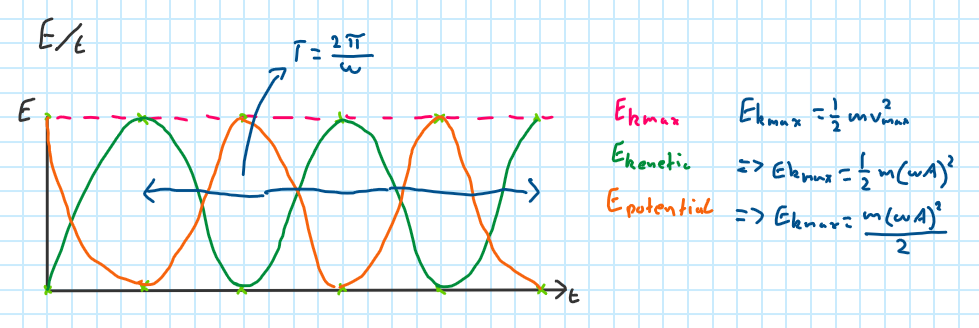 E/t
T = 2π/ω
E
t
Ekmax
Ekenetic
Epotential
Ekmax = 1/2 mv²max
=> Ekmax = 1/2 m(ωA)²
=> Ekmax = m(ωA)²/2